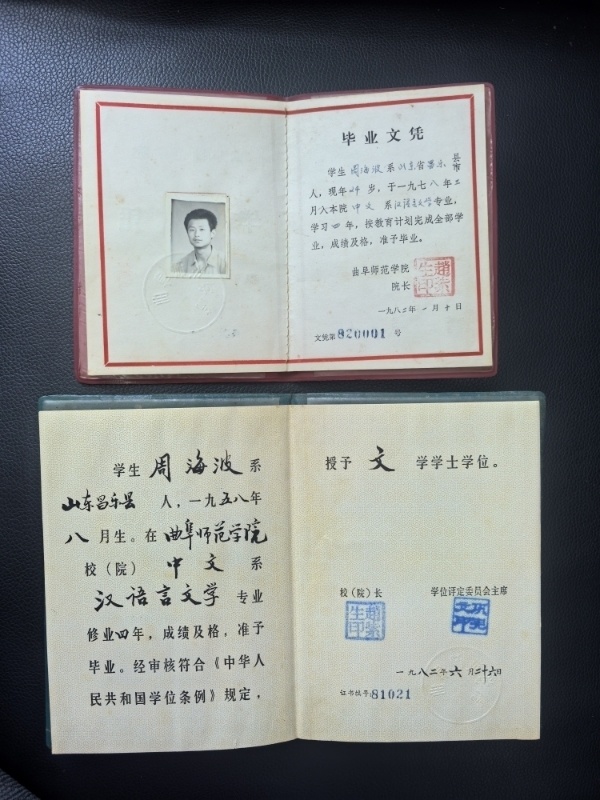 毕业文凭
学生周海波系山东省昌乐县市
人，现年24岁，于一九七八年二
月入本院中文系汉语言文学专业，
学习四年，按教育计划完成全部学
业，成绩及格，准予毕业。
曲阜师范学院
院长
赵紫生印
一九八二年一月十日
文凭第820001号
学生周海波系
山东昌乐县人，一九五八年
八月生。在曲阜师范学院
校（院）中文系
汉语言文学专业
修业四年，成绩及格，准予
毕业。经审核符合《中华人
民共和国学位条例》规定，
授予文学学士学位。
校（院）长 学位评定委员会主席
赵紫生印
一九八二年六月二十六日
证书号81021